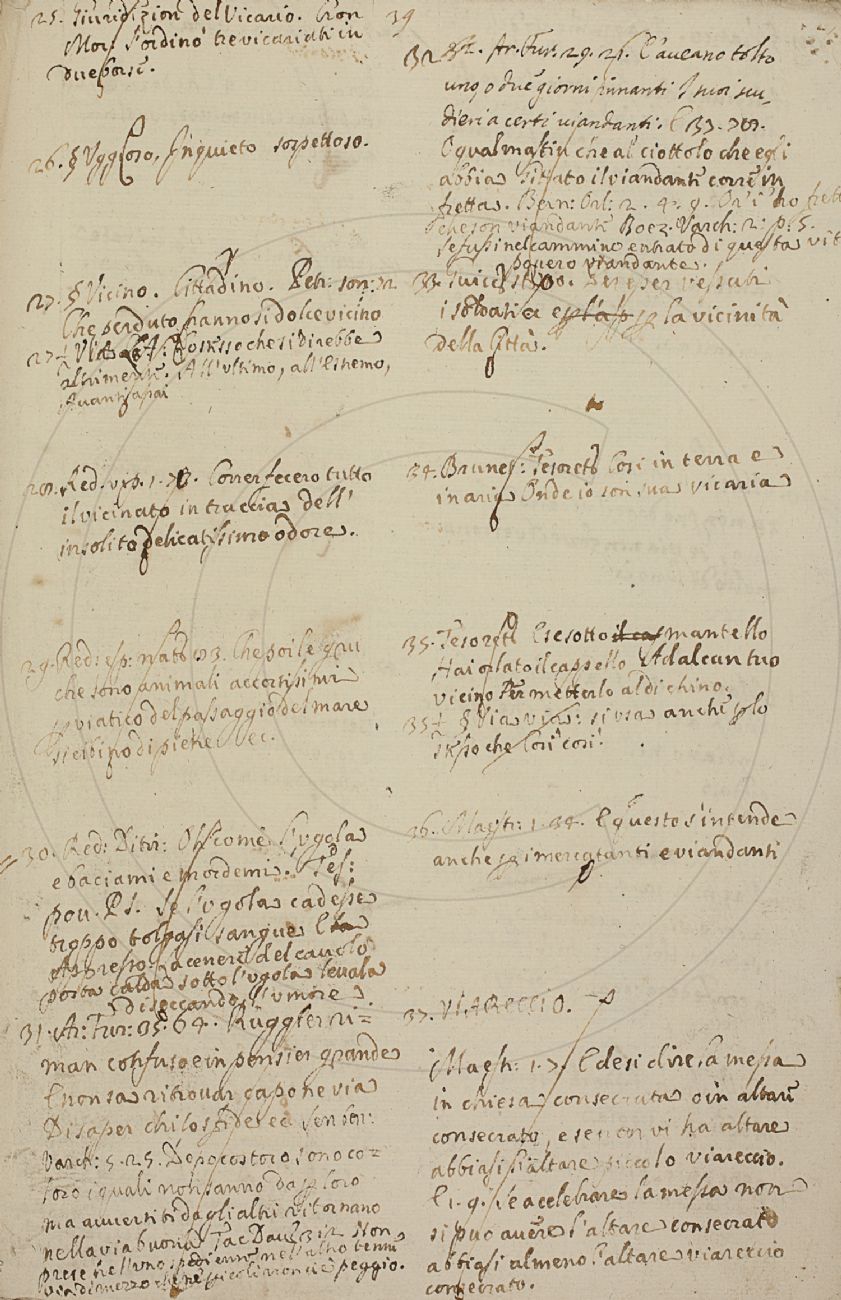 25. Giuridizion del Vicario. Cron
Mor. S'ordinò tre vicariati in
due borse.
26. § Uggioso, Inquieto sospettoso.
27. § Vicino. Cittadino. Petr: son:
Che perduto hanno sì dolce vicino
27½ Via che si direbbe
altrimenti. All'ultimo, all'Estremo,
Avanti
28. Red. Correr fecero tutto
il vicinato in traccia dell'
insolito delicatissimo odore.
29. Red: esp: nat: Che poi le gru
che sono animali accortissimi
p viatico del passaggio del mare
si cibino di pietre ec.
30. Red: Ditir: L'ugola
e baciami e mordemi. Tes:
pou. P.S. Se l'ugola cadesse
troppo tolgasi sangue E
Appresso la cenere del cavolo
posta calda sotto l'ugola levala
diseccando l'umore.
31. Ar: Fur: 35. 64. Ruggier ri=
man confuso e in pensier grande
E non sa ritrovar capo ne via
Di saper chi lo sfide Sen ben:
Varch: 5. 25. Dopo costoro sono co=
loro i quali non sanno da p loro
ma avvertiti dagli altri ritornano
nella via buona Tac. Dav. Non
prese nell'uno spediente nell'altro tenne
via di mezzo che ne' pericoli non c'è peggio.
39
32 Ar. Fur. 29. L'aveano tolto
uno o due giorni innanti I suoi scu_
dieri a certi viandanti. E 39. 78.
O qual mastin che al ciottolo che egli
abbia Gittato il viandante corre in
fretta. Bern: Orl: 2. 4. 9. Or i' ho frett
che son viandante Boez. Varch: 2: p: 5.
Se fussi nel cammino entrato di questa vit
povero viandante.
33. Guicc. Per esser vessati
i soldati e p la vicinità
della Città.
34. Brunet: Tesoret: Così in terra e
in aria Onde io son sua vicaria
35. Tesoret: E se sotto mantello
Hai orlato il cappello Ad alcun tuo
vicino Per metterlo al dichino.
35½ § Via via: si usa anche p lo
stesso che Così così.
36. Maestr: 1. 34. E questo s'intende
anche p i mercatanti e viandanti
37. VIARECCIO.
Maestr: 1. 7. E desi dire la messa
in chiesa consecrata o in altare
consecrato, e se non vi ha altare
abbiasi l'altare piccolo viareccio.
E 1. 9. Se a celebrare la messa non
si può avere l'altare consecrato
abbiasi almeno l'altare viareccio
consecrato.